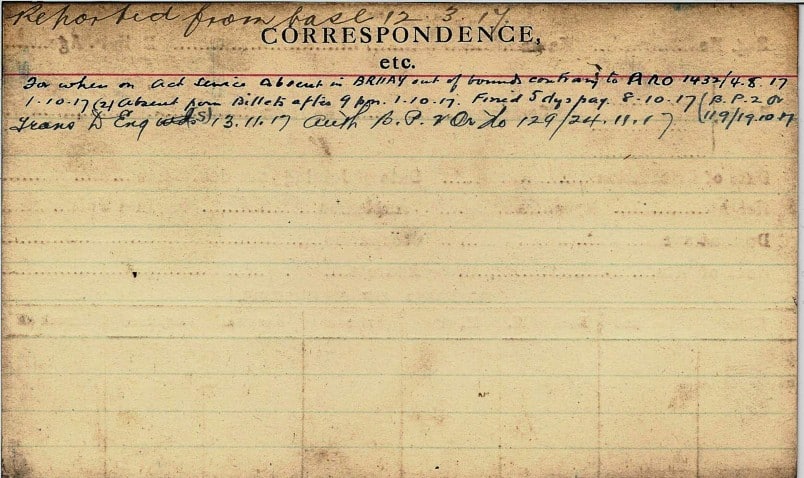 Reported from base 12.3.17.
CORRESPONDENCE,
etc.
For when on Act Service Absent in BRUAY out of bounds contrary to ARO 1432/4.8.17
1.10.17 (2) Absent from Billets after 9 pm. 1.10.17. Fined 5 dys pay. 8.10.17 (B.P. 2 Or
119/19.10.17
Trans D Eng 13.11.17 Auth B.P. 2 Or No 129/24.11.17